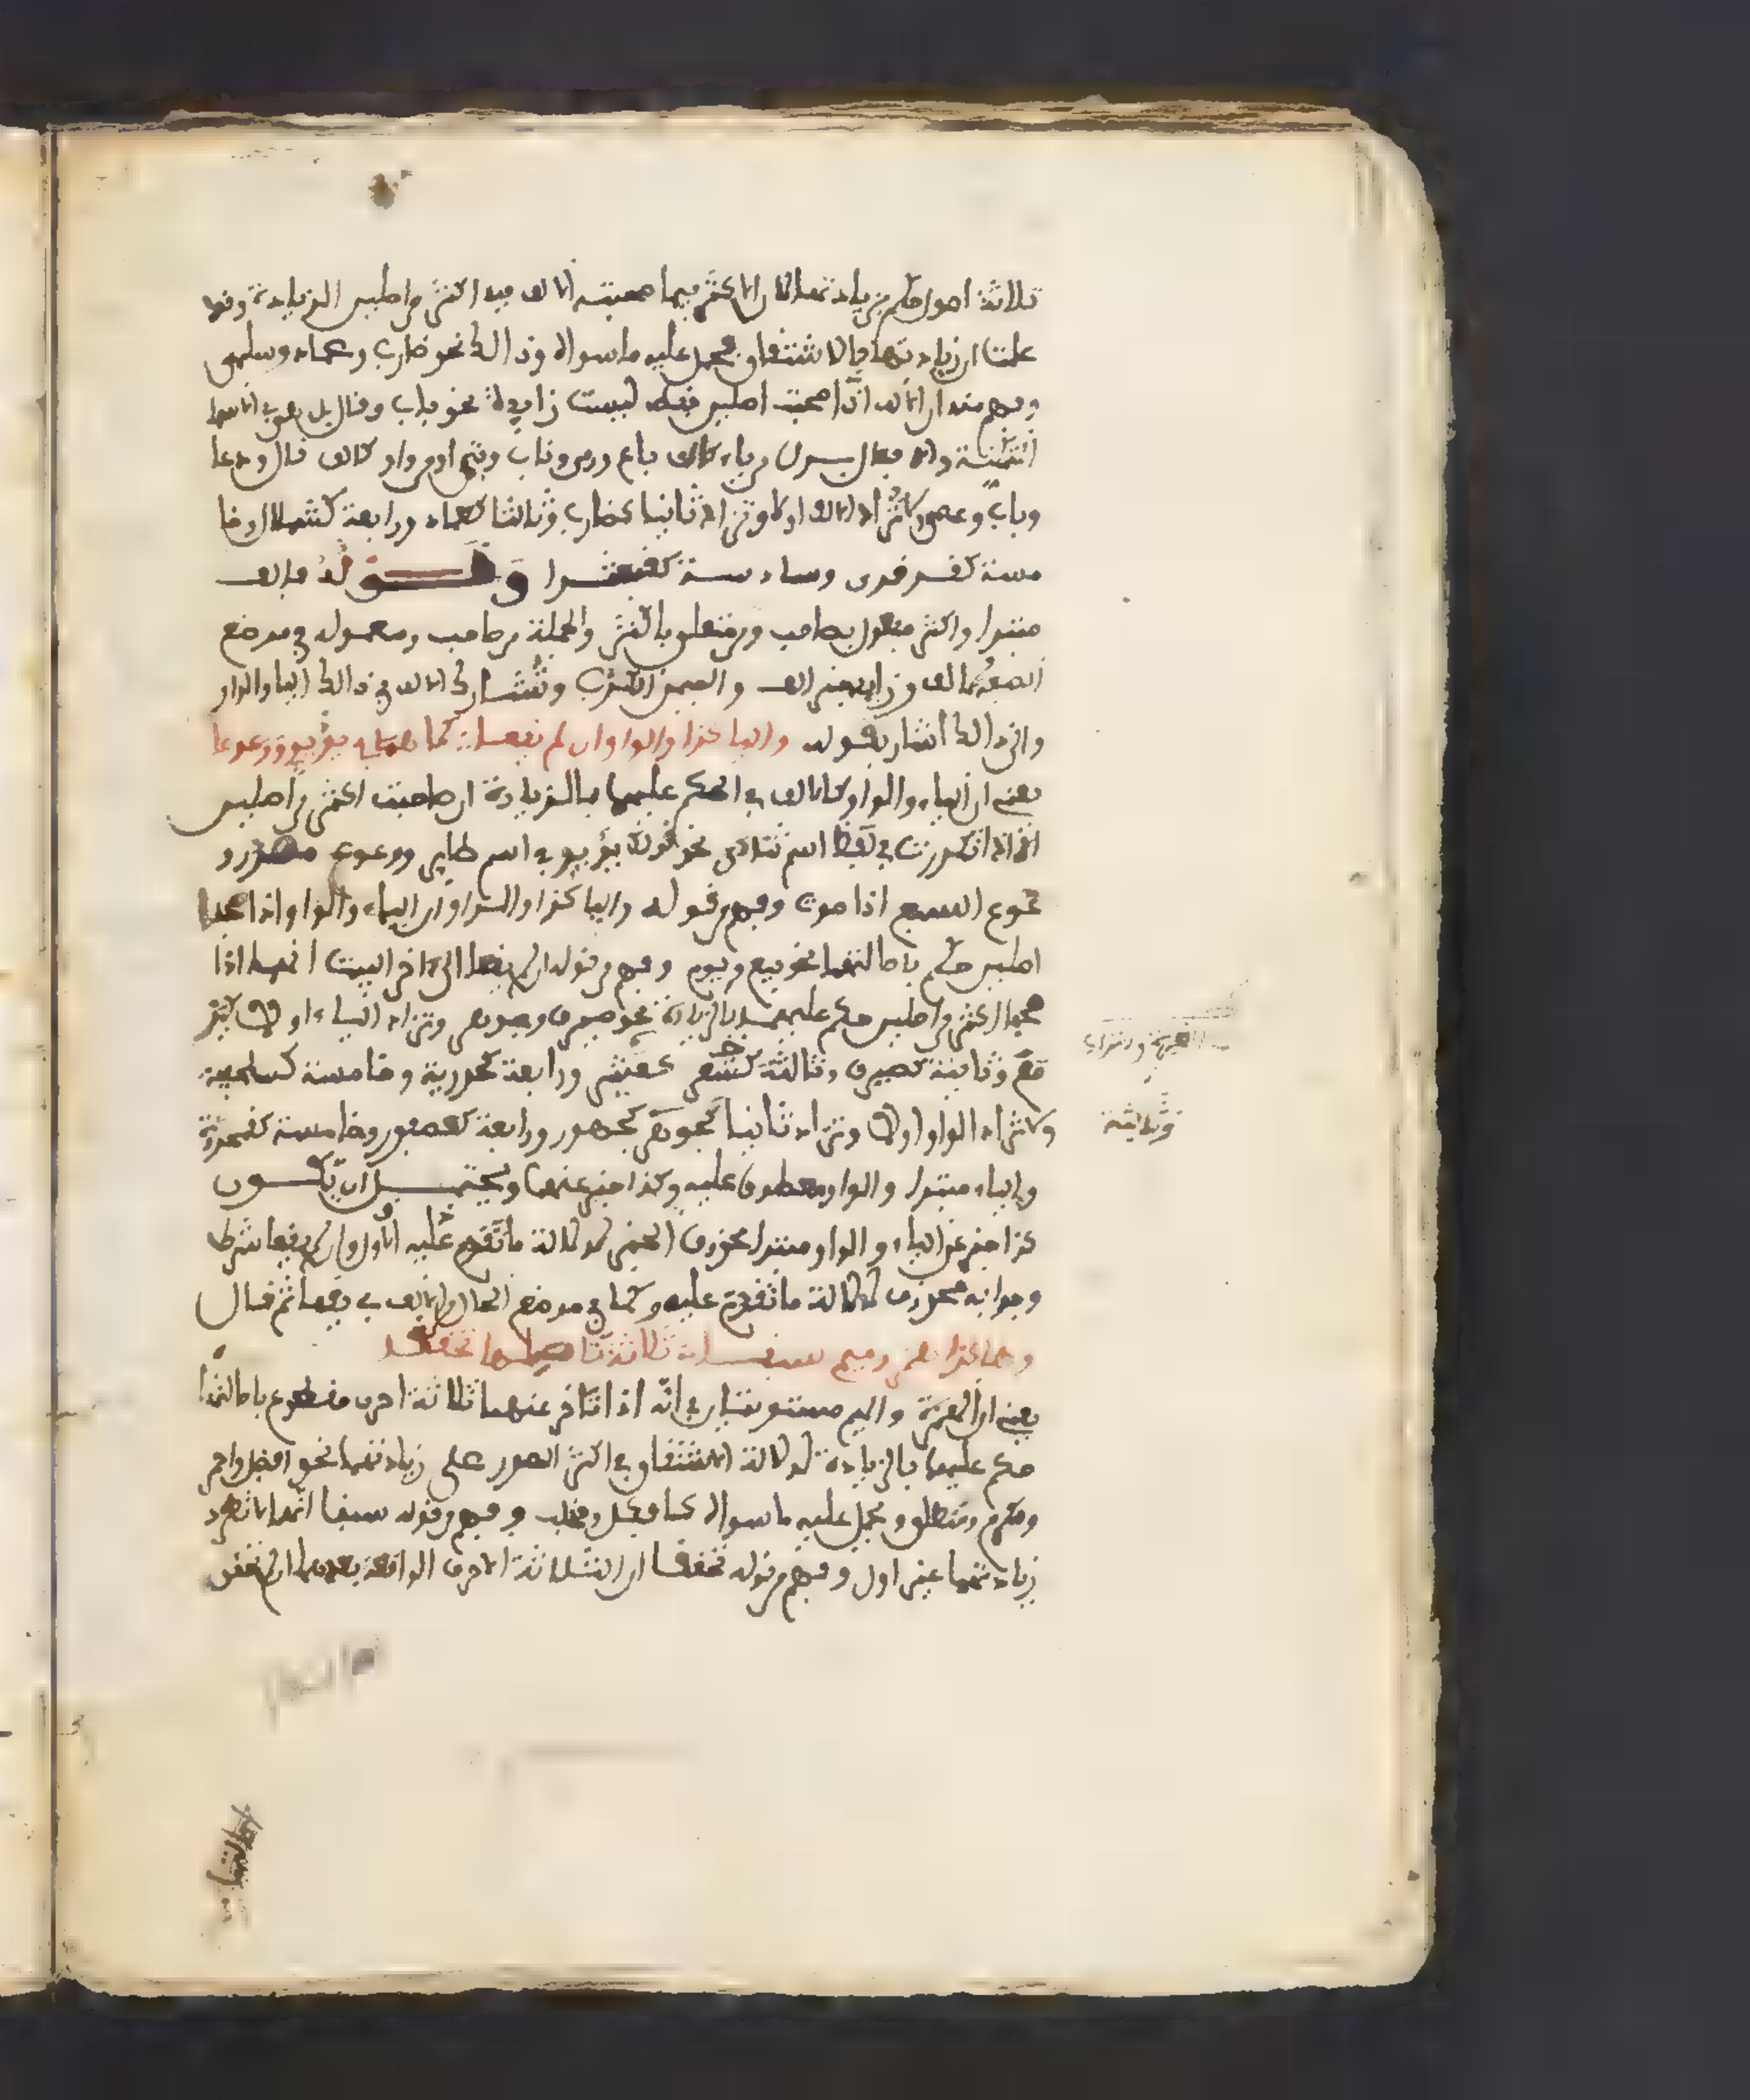 ثلاثة اصول حكم بزيادتها لان الاكثر فيما صحبت الالف فيه اكثر من اصلين الزيادة وقد
علمنا ان زيادتها بالاشتقاق فحمل عليه ما سواه وذالك نحو ضارب وعماد وسلمى
وفهم منه ان الالف اذا صحبت اصلين فقط ليست زايدة نحو باب وقال بل هي في الاسماء
المتمكنة والافعال بدل من ياء كالف باع ورمى وناب وفتى او من واو كالف قال ودعا
وباب وعصى ولا تزاد الالف اولا وتزاد ثانيا كضارب وثالثا كعماد ورابعة كشملال وخا
مسة كقرقرى وسادسة كقبعثرا وقوله فالف
مبتدا واكثر مفعول بصاحب ومن متعلق باكثر والجملة من صاحب ومعموله في موضع
الصفة لالف وزايد خبر الف والمين الكذب وتشارك الالف في ذالك اليا والواو
والى ذالك اشار بقوله واليا كذا والواو ان لم يقعا كما هما في يؤيؤ ووعوعا
يعني ان الياء والواو كالالف في الحكم عليهما بالزيادة ان صاحبت اكثر من اصلين
الا اذا تكررت في لفظ اسم ثلاثي نحو قولك يؤيؤ في اسم طاير ووعوع مصدر و
عوع السبع اذا صوت وفهم من قوله واليا كذا والواو ان الياء والواو اذا صحبا
اصلين حكم باصالتهما نحو بيع ويوم وفهم من قوله ان لم يقعا الى اخر البيت انهما اذا
صحبا اكثر من اصلين حكم عليهما بالزيادة نحو صيرف وجوهر وتزاد الياء اولا كيلـ
مع وثانية كصيرف وثالثة كـ عثير ورابعة كحذرية وخامسة كسلحفية
ولا تزاد الواو اولا وتزاد ثانيا كجوهر كجهور ورابعة كعصفور وخامسة كقمحدوة
والياء مبتدا والواو معطوف عليه وكذا خبر عنهما ويحتمل ان يكون
كذا خبر عن الياء والواو مبتدا محذوف الخبر لدلالة ما تقدم عليه الاول وان لم يقعا شرط
وجوابه محذوف لدلالة ما تقدم عليه وكما في موضع الحال من الالف في يقعا ثم قال
وهاكذا همز وميم سبقا ثلاثة تاصيلها تحققا
يعني ان الهمزة والميم متساويتان في انه اذا تاخر عنهما ثلاثة احرف مقطوع باصالتها
حكم عليهما بالزيادة لدلالة الاشتقاق في اكثر الصور على زيادتهما نحو افضل واحمر
ومكرم ومنطلق وحمل عليه ما سواه كافكل ومخلب وفهم من قوله سبقا انهما لا تطرد
زيادتهما غير اول وفهم من قوله تحققا ان الثلاثة الاحرف الواقعة بعدهما ان لم تتحقق
وثالثة